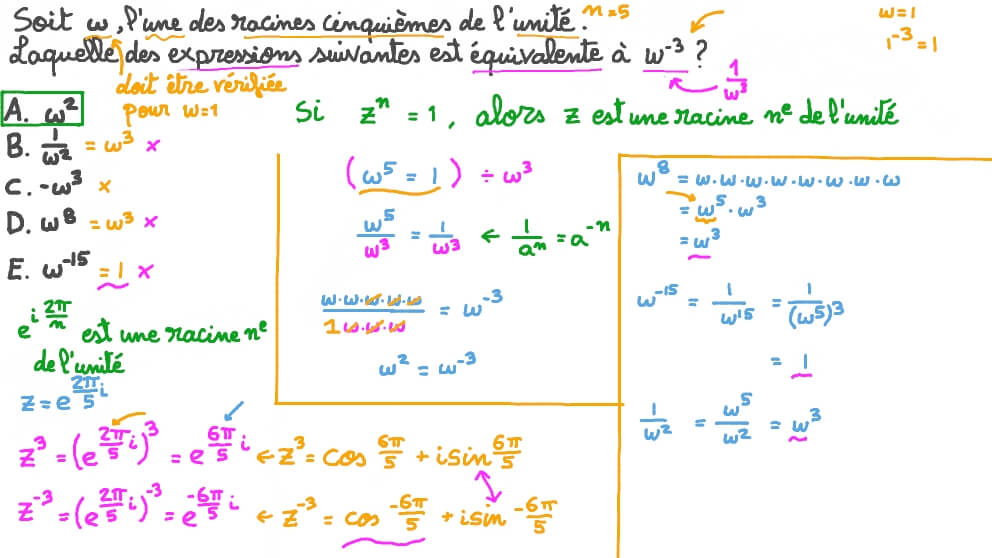 Soit ω, l'une des racines cinquièmes de l'unité. n=5
Laquelle des expressions suivantes est équivalente à ω⁻³ ?
ω=1
1⁻³=1
1/ω³
doit être vérifiée
pour ω=1
A. ω²
B. 1/ω² = ω³ ×
C. -ω³ ×
D. ω⁸ = ω³ ×
E. ω⁻¹⁵ = 1 ×
Si zⁿ = 1, alors z est une racine nᵉ de l'unité
(ω⁵ = 1) ÷ ω³
ω⁵/ω³ = 1/ω³ ← 1/aⁿ = a⁻ⁿ
ω·ω·ω·ω·ω/1ω·ω·ω = ω⁻³
ω² = ω⁻³
ω⁸ = ω·ω·ω·ω·ω·ω·ω·ω
= ω⁵·ω³
= ω³
ω⁻¹⁵ = 1/ω¹⁵ = 1/(ω⁵)³
= 1
1/ω² = ω⁵/ω² = ω³
e^(i 2π/n) est une racine nᵉ
de l'unité
z = e^(2π/5 i)
z³ = (e^(2π/5 i))³ = e^(6π/5 i) ← z³ = cos 6π/5 + i sin 6π/5
z⁻³ = (e^(2π/5 i))⁻³ = e^(-6π/5 i) ← z⁻³ = cos -6π/5 + i sin -6π/5